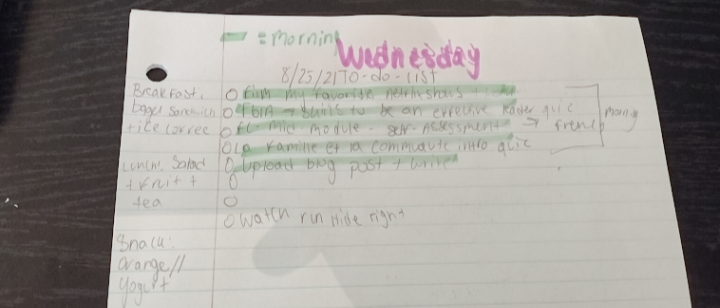 = Morning
Wednesday
8/25/21 To-do-list
Breakfast:
bagel sandwich
+ ice coffee
O Film my favorite netflix shows
O FBLA → skills to be an effective leader quiz
O EL - mic - module - self-Assessment → french
O La Famille et la communauté intro quiz
O Upload blog post + write
O
O
O watch run hide fight
morning
Lunch: Salad
+ Fruit +
tea
Snack:
Orange //
Yogurt